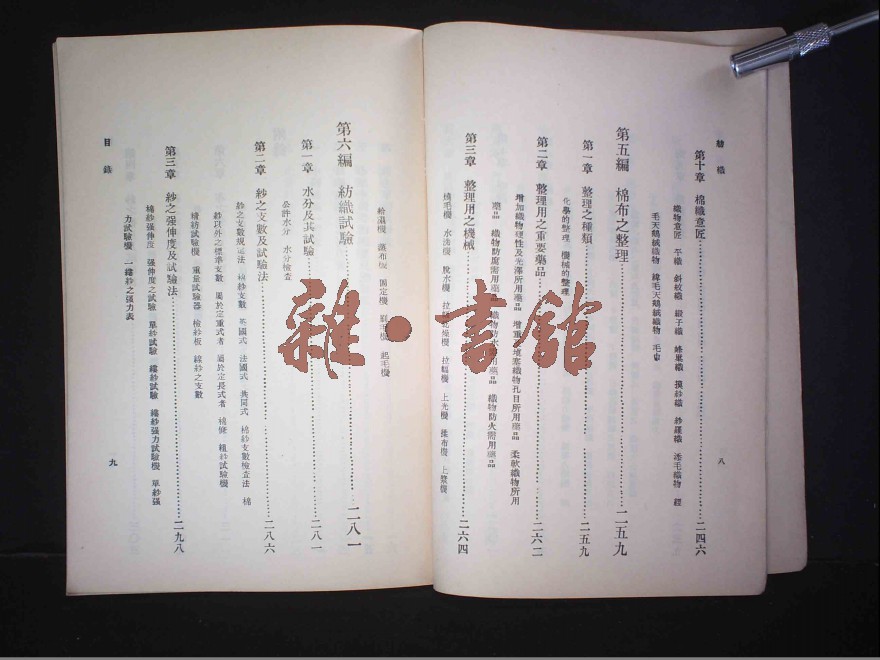 織
第十章 棉織意匠……二四六
織物意匠 平織 斜紋織 緞子織 蜂巢織 摸紗織 紗羅織 透毛織物 經
毛天鵝絨織物 緯毛天鵝絨織物 毛巾
第五編 棉布之整理……二五九
第一章 整理之種類……二五九
化學的整理 機械的整理
第二章 整理用之重要藥品……二六二
增加織物硬性及光澤所用藥品 增重 填塞織物孔目所用藥品 柔軟織物所用
藥品 織物防腐需用藥 織物防水 用藥品 織物防火需用藥品
第三章 整理用之機械……二六四
燒毛機 水洗機 脫水機 拉 乾燥機 拉幅機 上光機 揉布機 上漿機
八
給濕機 布機 固定機 毛機 起毛機
第六編 紡織試驗……二八一
第一章 水分及其試驗……二八一
公許水分 水分檢查
第二章 紗之支數及試驗法……二八六
紗之支數規定法 棉紗支數 英國式 法國式 共同式 棉紗支數檢查法 棉
紗以外之標準支數 屬於定重式者 屬於定長式者 棉條 粗紗試驗機
精紡試驗機 重量試驗器 檢紗板 線紗之支數
第三章 紗之强伸度及試驗法……二九八
棉紗强伸度 强伸度之試驗 單紗試驗 縷紗試驗 縷紗强力試驗機 單紗强
力試驗機 一縷紗之强力表
目錄
九
雜·書館